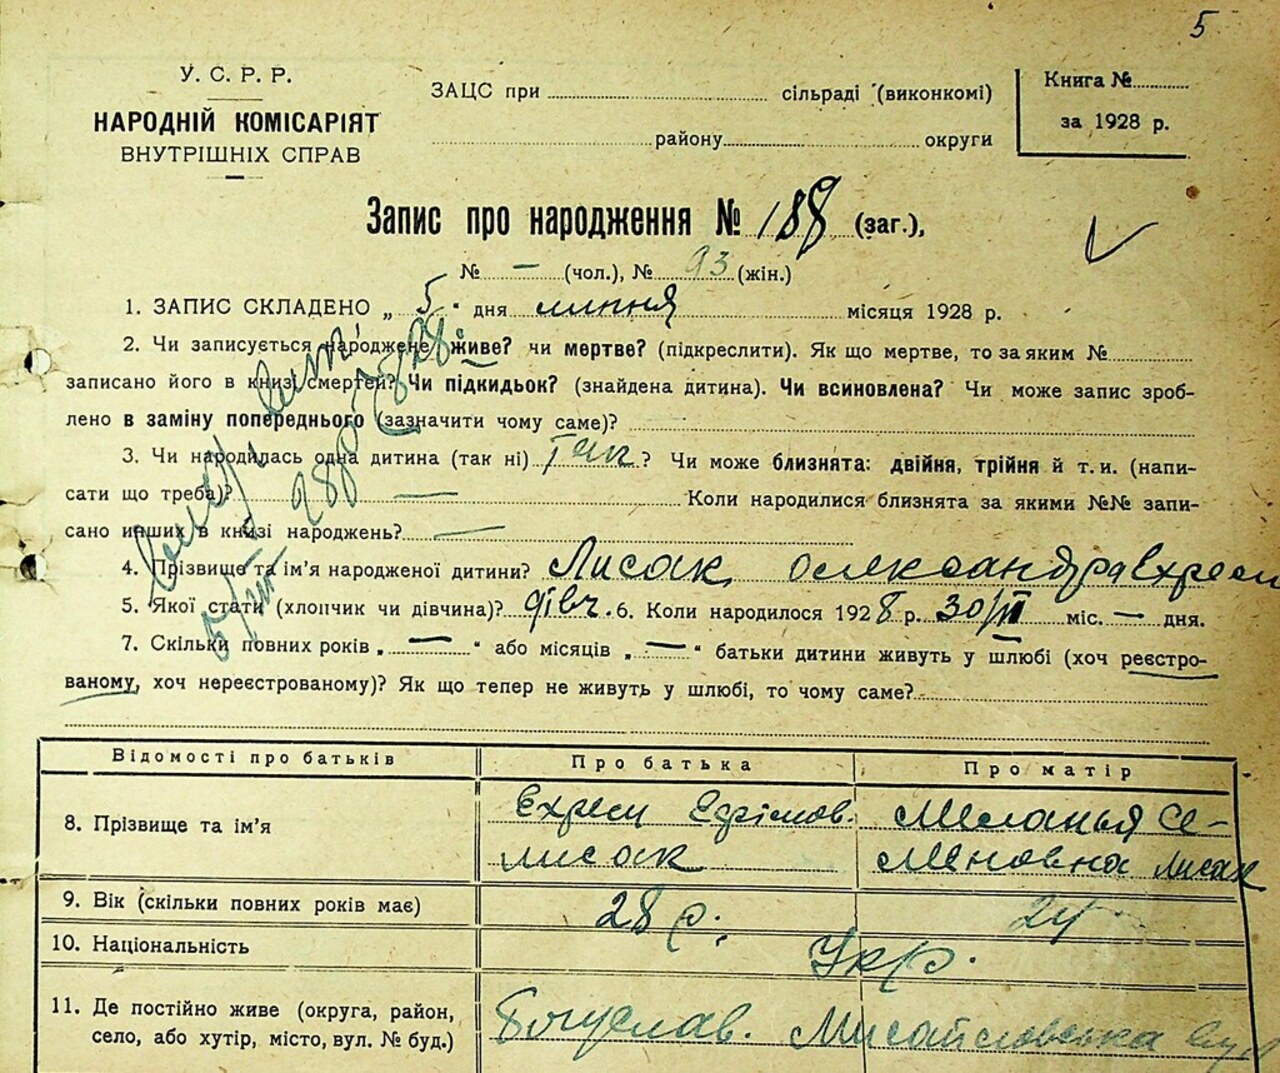 5
У. С. Р. Р.
НАРОДНІЙ КОМІСАРІЯТ
ВНУТРІШНІХ СПРАВ
ЗАЦС при сільраді (виконкомі)
району округи
Книга №
за 1928 р.
Запис про народження № 188 (заг.),
№ — (чол.), № 93 (жін.)
1. ЗАПИС СКЛАДЕНО „ 5 " дня липня місяця 1928 р.
2. Чи записується народжене живе? чи мертве? (підкреслити). Як що мертве, то за яким №
записано його в книзі смертей? Чи підкидьок? (знайдена дитина). Чи всиновлена? Чи може запис зроб-
лено в заміну попереднього (зазначити чому саме)?
3. Чи народилась одна дитина (так ні) так ? Чи може близнята: двійня, трійня й т. и. (напи-
сати що треба)? — Коли народилися близнята за якими №№ запи-
сано инших в книзі народжень? —
4. Прізвище та ім'я народженої дитини? Лисак Олександра Ехрем
5. Якої стати (хлопчик чи дівчина)? дівч. 6. Коли народилось 1928 р. 30/ міс. — дня.
7. Скільки повних років „ — " або місяців „ — " батьки дитини живуть у шлюбі (хоч реєстро-
ваному, хоч нереєстрованому)? Як що тепер не живуть у шлюбі, то чому саме?
Відомості про батьків Про батька Про матір
8. Прізвище та ім'я Ехрем Єфрімов. Лисак Меланья Се-
меновна Лисак
9. Вік (скільки повних років має) 28 р. 24
10. Національність Укр.
11. Де постійно живе (округа, район,
село, або хутір, місто, вул. № буд.) Богуслав. Мисайловська